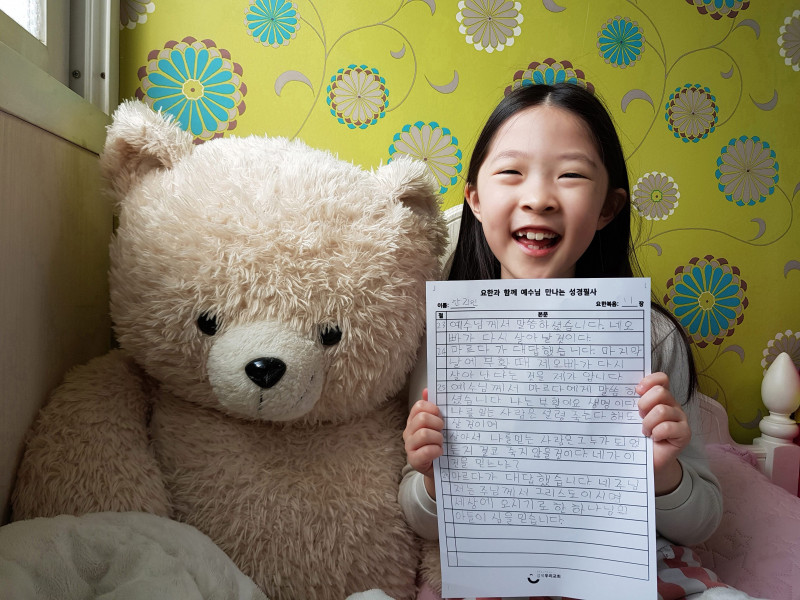 요한과 함께 예수님 만나는 성경필사
이름: 요한복음: 11 장
절 본문
23 예수님께서 말씀하셨습니다. 네 오
빠가 다시 살아날 것이다
24 마르다가 대답했습니다 마지막
날에 부활 때 제 오빠가 다시
살아나리라는 것을 제가 압니다
25 예수님께서 마르다에게 말씀하
셨습니다 나는 부활이요 생명이다
나를 믿는 사람은 설령 죽는다 해도
살 것이며
살아서 나를 믿는 사람은 그 누가 되었
든지 결코 죽지 않을 것이다 네가 이
것을 믿느냐?
마르다가 대답했습니다 네 주님
저는 주님께서 그리스도이시며
세상에 오시기로 한 하나님의
아들이심을 믿습니다
우리교회